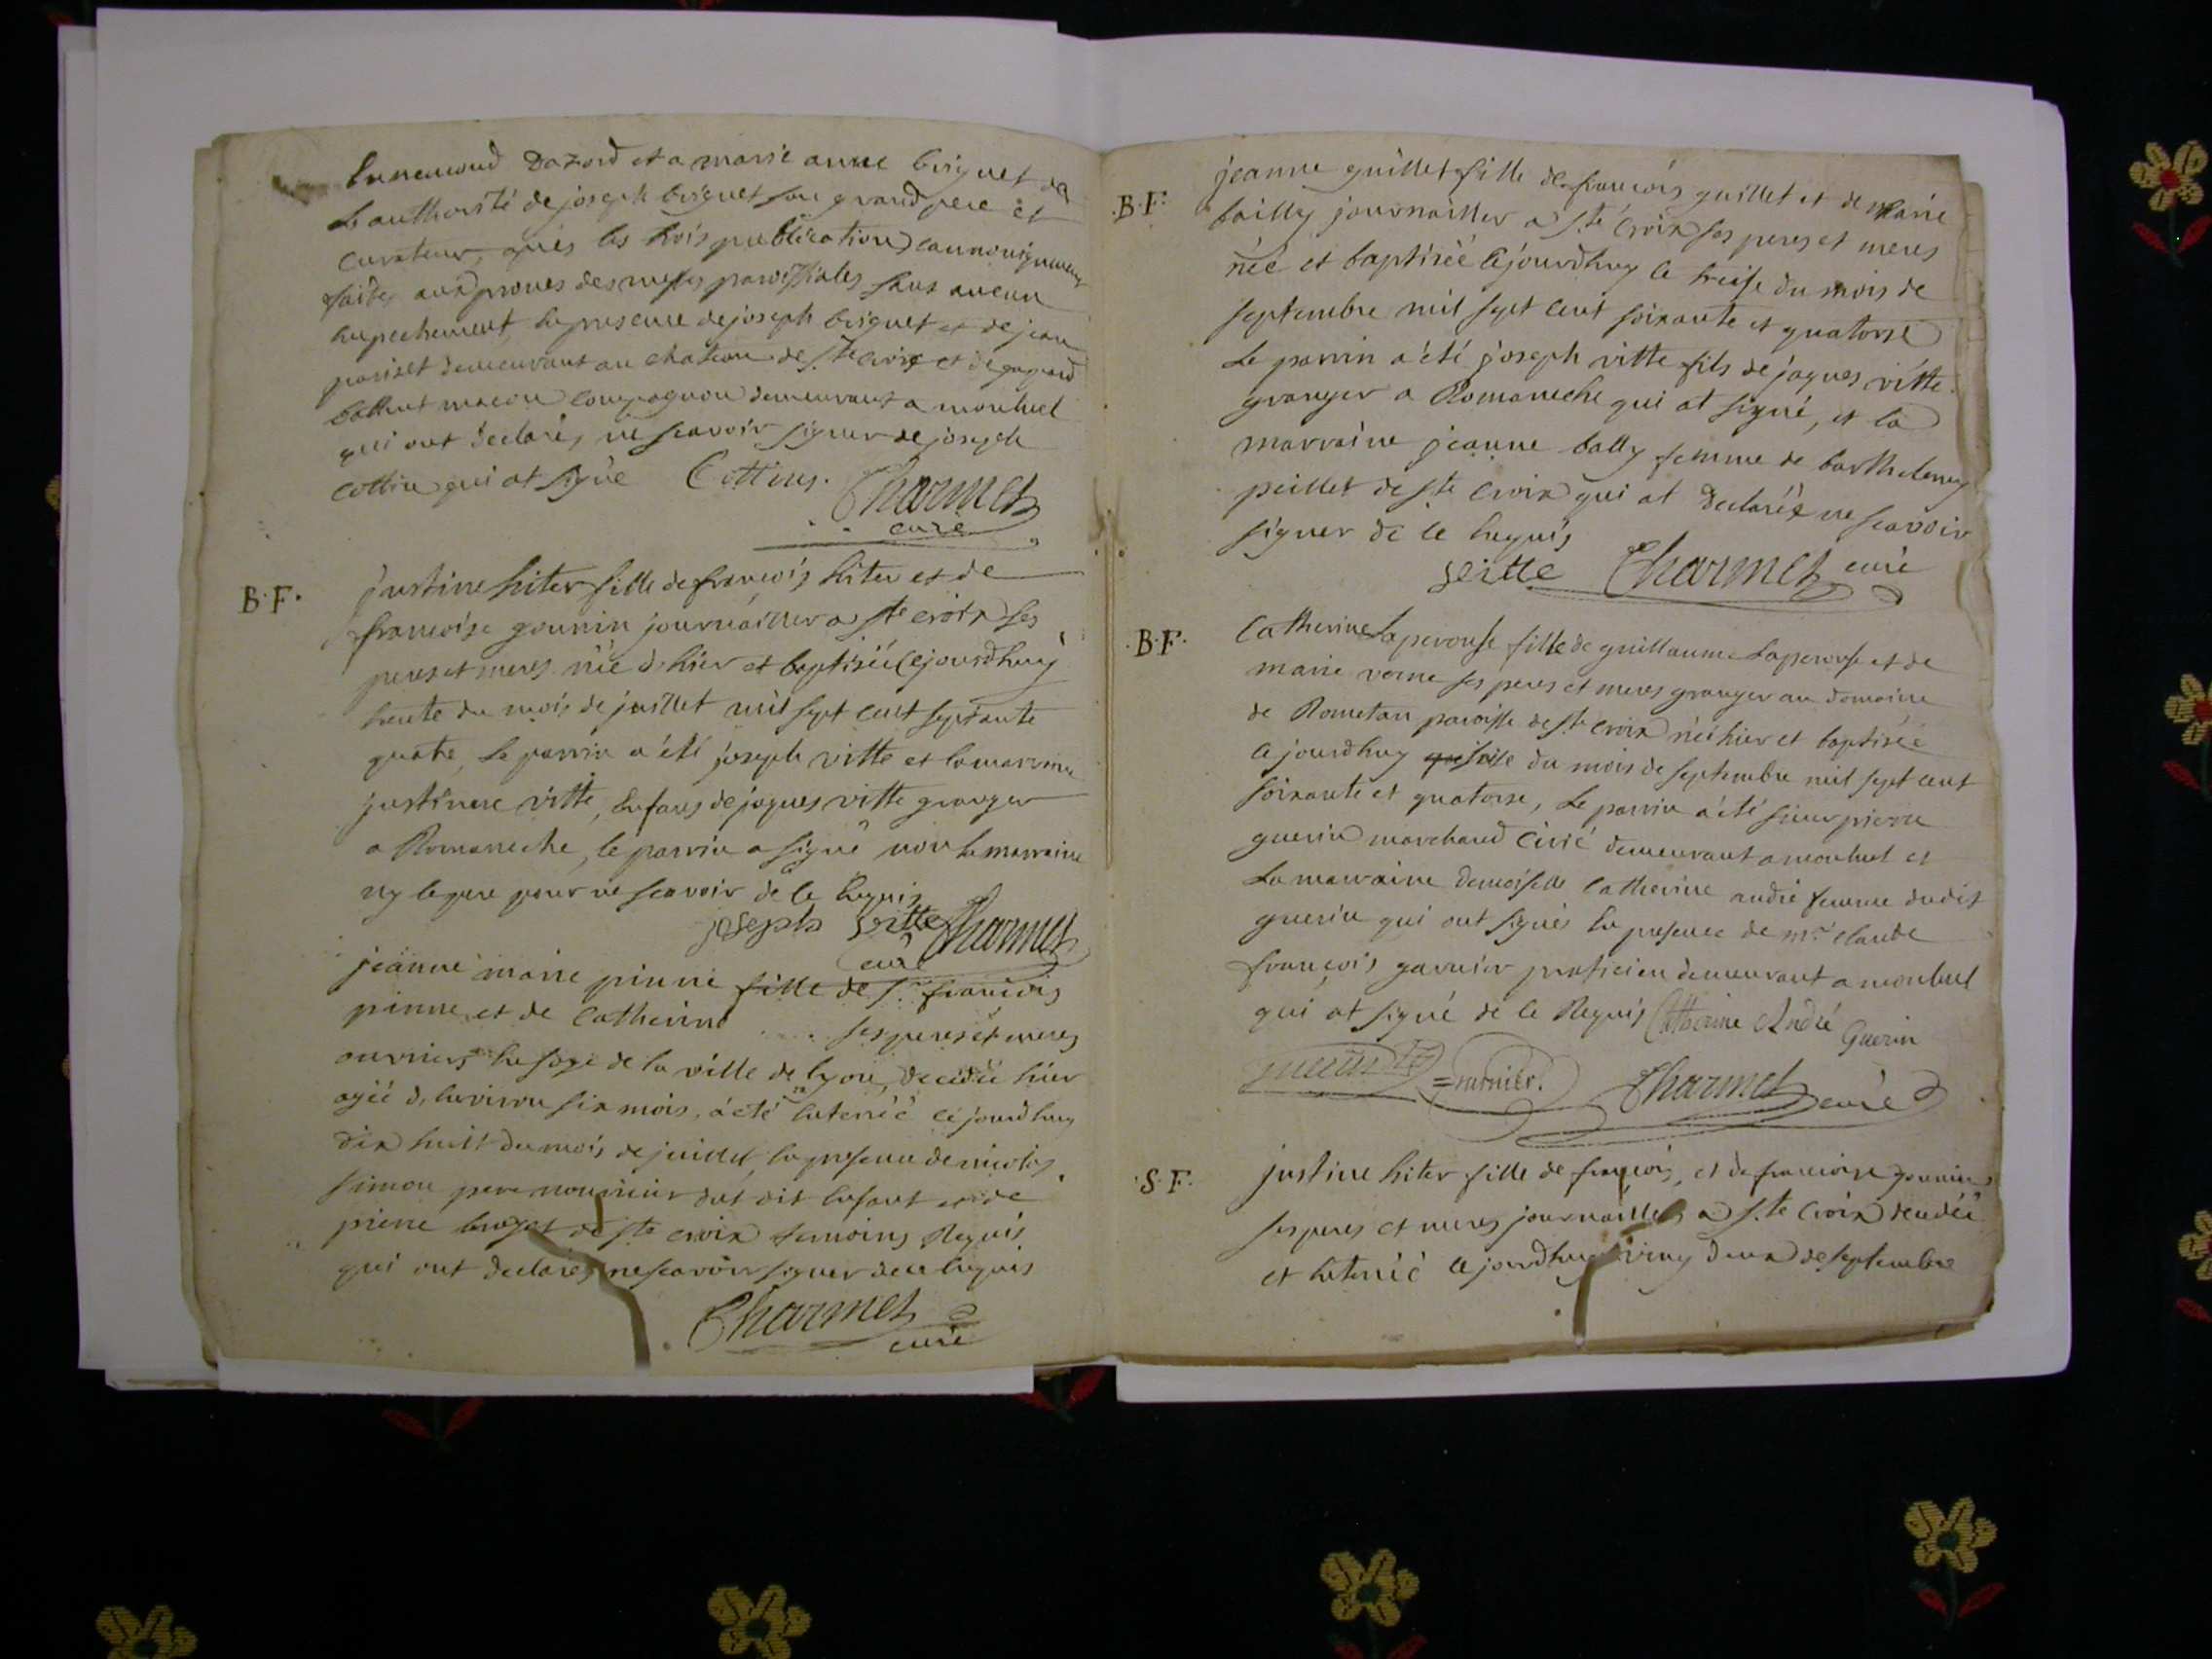 Ennemond Dazord et a marie anne briguet de
L'authorité de joseph briguet son grand pere et
Curateur, après les trois publications canoniquement
faites aux prones des messes paroissiales sans aucun
Empechement, En presence de joseph briguet et de jean
pariset demeurant au chateau de Ste Croix et de gaspard
maçon Compagnon demeurant a monluel
qui ont déclarés ne scavoir signer de joseph
cottin qui at signé Cottin.
Charmet
curé
B.F. justine hiter fille de françois hiter et de
françoise gounin journaillier a Ste croix ses
peres et meres née d'hier et baptisée Cejourdhuy
trente du mois de juillet mil sept cent septante
quatre, Le parrin a été joseph vitte et la marrine
justinne vitte, Enfans de jaques vitte granger
a Romaneche, le parrin a signé non la marraine
ny le pere pour ne scavoir de ce Enquis
joseph vitte Charmet
curé
jeanne marie pinne fille de Sr françois
pinne et de Catherine .... ses peres et meres
ouvriers En soye de la ville de lyon, decedée hier
agéé d'Environ six mois, a été Enterréé ce jourdhuy
dix huit du mois de juillet, En presence de nicolas
simon pere nourricier dut dit Enfant et de
pierre de Ste croix temoins Requis
qui ont declarés ne scavoir signer de ce Enquis
Charmet
curé
B.F. jeanne guillet fille de françois guillet et de Marie
bailly journaillier a Ste Croix ses peres et meres
née et baptiséé Cejourdhuy le treise du mois de
septembre mil sept cent soixante et quatorse
Le parrin a été joseph vitte fils de jaques vitte
granger a Romaneche qui at signé, et la
marraine jeanne bally femme de barthelemy
peillet de Ste Croix qui at declaréé ne scavoir
signer de ce Enquis
vitte Charmet curé
B.F. Catherine Laperouse fille de guillaume Laperouse et de
marie vorne ses peres et meres granger au domaine
de Rometan paroisse de Ste Croix néé hier et baptiséé
ce jourdhuy du mois de septembre mil sept cent
soixante et quatorse, Le parrin a été sieur pierre
guerin marchand Cirié demeurant a monluel et
La marraine demoiselle Catherine andré femme dudit
guerin qui ont signés En presence de mr claude
françois garnier praticien demeurant a monluel
qui at signé de ce Requis Catherine André Guerin
guerin garnier. Charmet curé
S.F. justine hiter fille de françois, et de francoise gounin
ses peres et meres journailliers a Ste Croix decedéé
et Enterréé cejourdhuy vingt deux de septembre